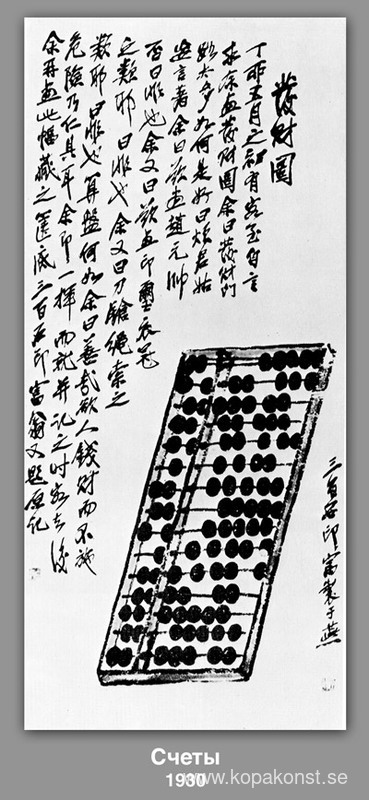 發財圖
丁卯五月之初有客至自言
求余畫發財圖余曰發財門
路太多如何是好曰煩君姑
妄言著余曰欲畫趙元帥
否曰非也余又曰欲畫印璽衣冠
之類耶曰非也余又曰刀鎗繩索之
類耶曰非也算盤何如余曰善哉欲人錢財而不施
危險乃仁具耳余即一揮而就并記之時客去後
余再畫此幅藏之篋底三百石印富翁又題原記
三百石印富製于燕
Счеты
1930
www.kopakonst.se